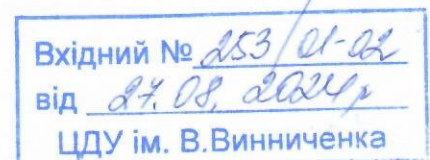 Вхідний № 253/01-02
від 27.08.2024р
ЦДУ ім. В.Винниченка